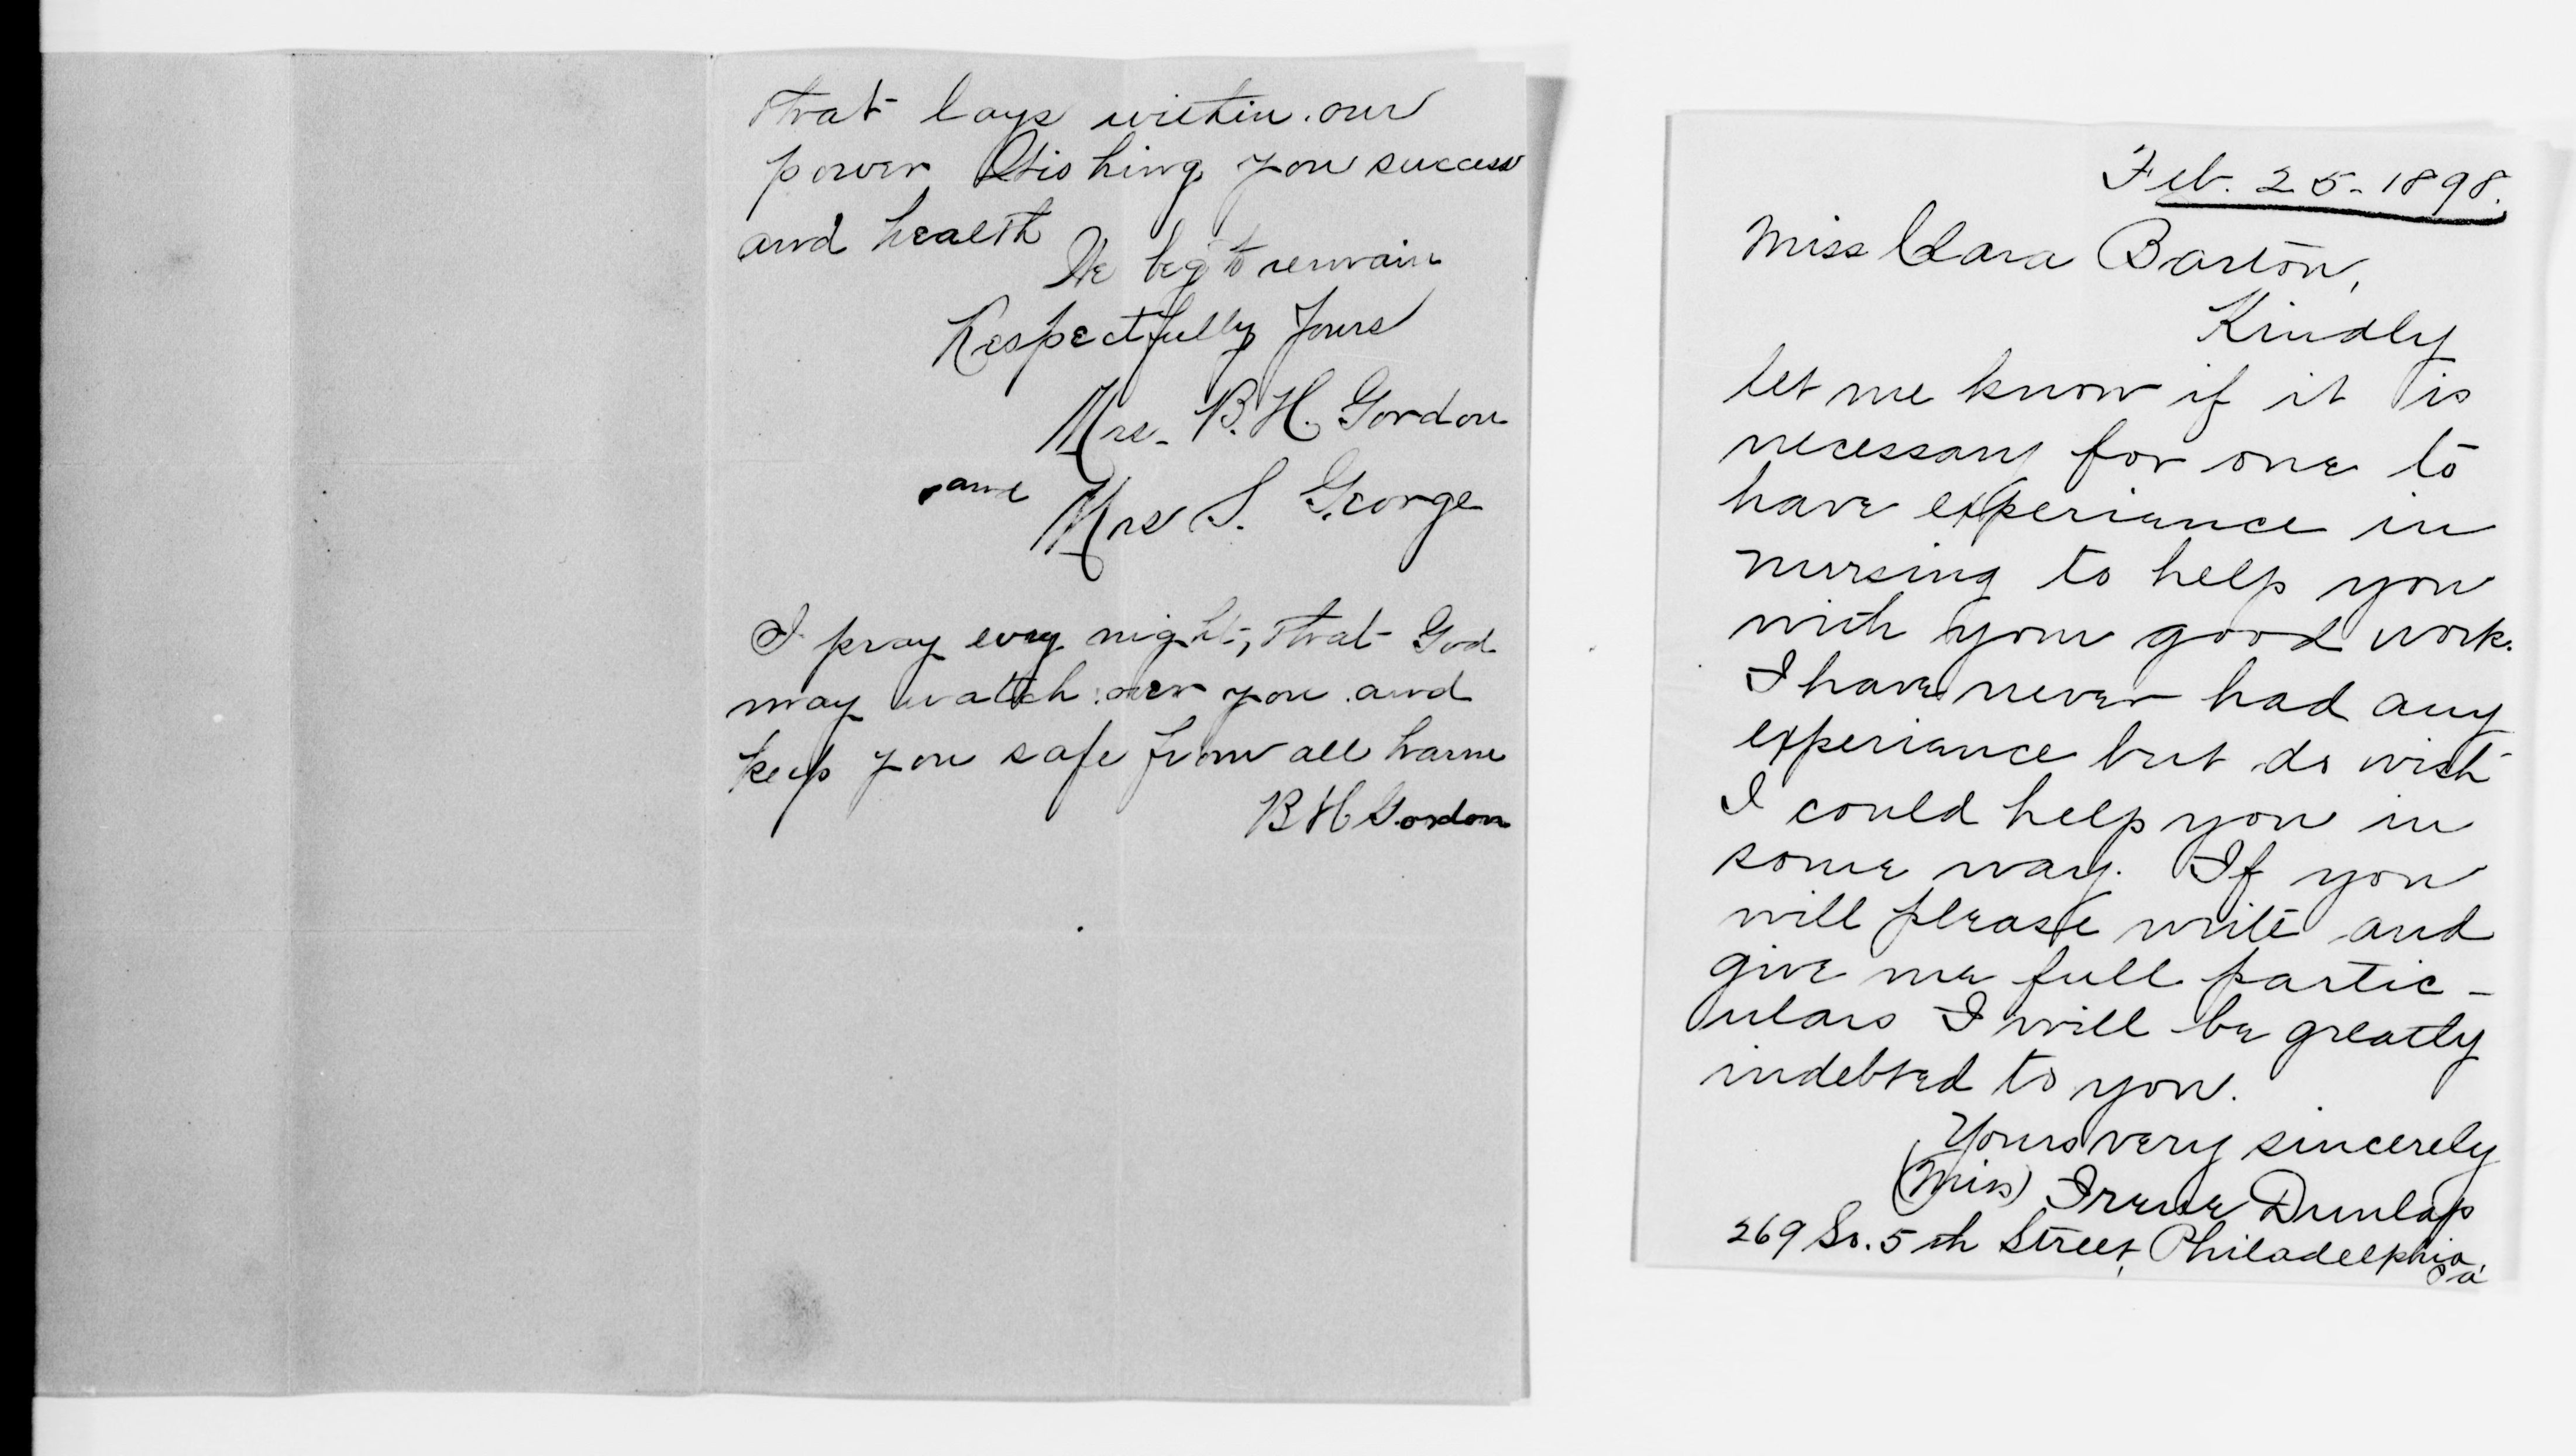 that lays within our
power Wishing you success
and health
We beg to remain
Respectfully Yours
Mrs. B. H. Gordon
and
Mrs S. George
I pray evry night, that God
may watch over you and
keep you safe from all harm
B H Gordon
Feb. 25-1898.
Miss Clara Barton,
Kindly
let me know if it is
necessary for one to
have experience in
nursing to help you
with your good work.
I have never had any
experience but do wish
I could help you in
some way. If you
will please write and
give me full partic-
ulars I will be greatly
indebted to you.
Yours very sincerely
(Miss) Irene Dunlap
269 So. 5th Street, Philadelphia,
Pa